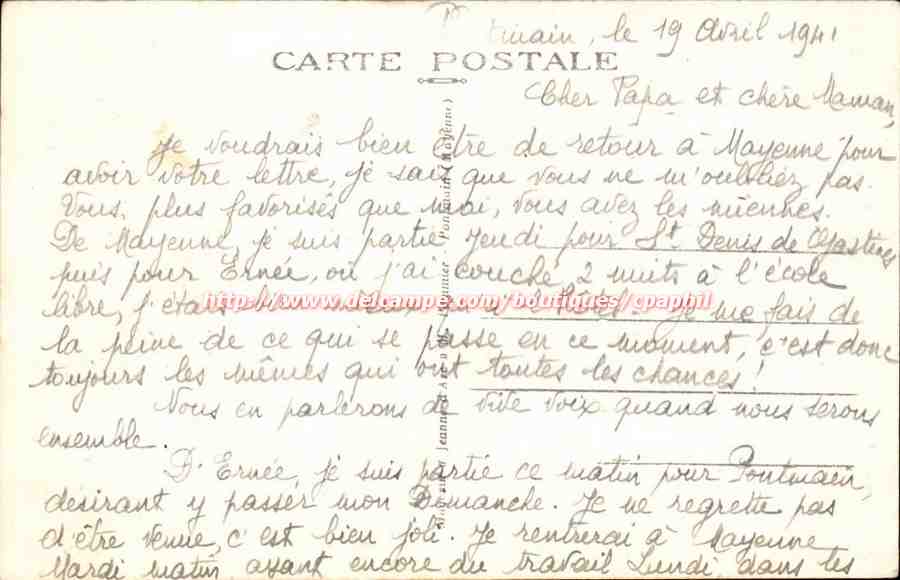 tmain, le 19 Avril 1941
CARTE POSTALE
Cher Papa et chère Maman,
Je voudrais bien être de retour à Mayenne pour
avoir votre lettre, je sais que vous ne m'oubliez pas.
Vous, plus favorisés que moi, vous avez les miennes.
De Mayenne, je suis partie jeudi pour St Denis de Gastines
puis pour Ernée, où j'ai couché 2 nuits à l'école
libre, j'étais mieux Hôtel. Je me fais de
la peine de ce qui se passe en ce moment, c'est donc
toujours les mêmes qui ont toutes les chances!
Nous en parlerons de vive voix quand nous serons
ensemble.
D'Ernée, je suis partie ce matin pour Pontmain,
désirant y passer mon Dimanche. Je ne regrette pas
d'être venue, c'est bien joli. Je rentrerai à Mayenne
Mardi matin ayant encore du travail Lundi dans les
Jeanne d'Arc Pontmain (Mayenne)
http://www.delcampe.com/boutiques/cpaphil